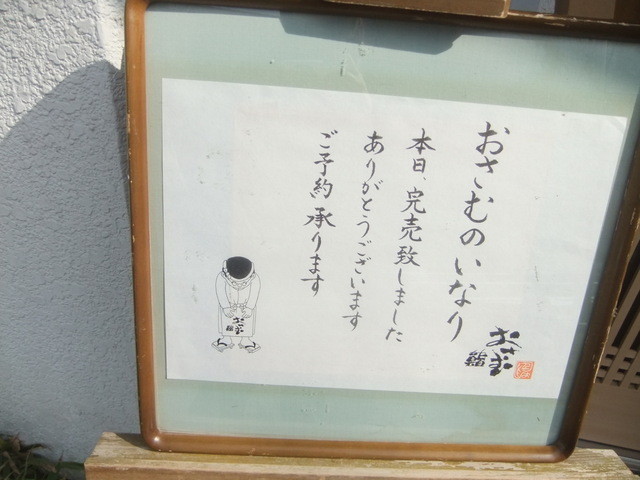 おさむのいなり
本日、完売致しました
ありがとうございます
ご予約承ります
おさむ
鮨
おさむ
鮨